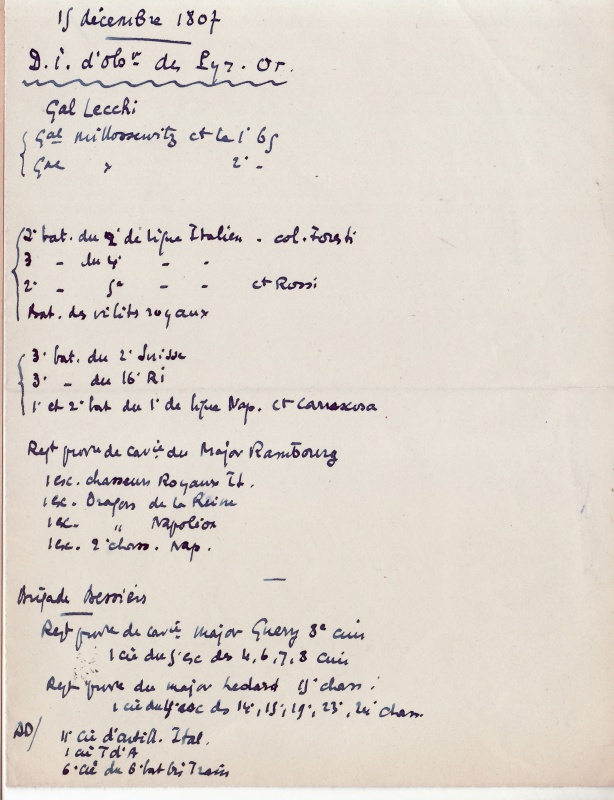 15 décembre 1807
D.I. d'obson des Pyr. Or.
Gal Lecchi
Gal Millossewitz ct la 1e bg
Gal " 2e -
2e bat. du 2e de ligne Italien - col. Foresti
3 - du 4e - -
2e - 5e - - ct Rossi
Bat. des vélits royaux
3e bat. du 2e Suisse
3e - du 16e RI
1e et 2e bat du 1e de ligne Nap. ct Carrascosa
Regt provre de cavie du Major Rambourg
1 esc. chasseurs Royaux It.
1 esc. Dragons de la Reine
1 esc. " Napoléon
1 esc. 2e chass. Nap.
Brigade Bessières
Regt provre de cavie major Guery 3e cuir
1 cie du 5e esc des 4, 6, 7, 8 cuir
Regt provre du major 15e chass.
1 cie du 4e esc ds 14e, 15e, 19e, 23e, 24e chass.
AD/ 11e cie d'artill. Ital.
1 cie T d'A
6e cie du 6e bat bis Train